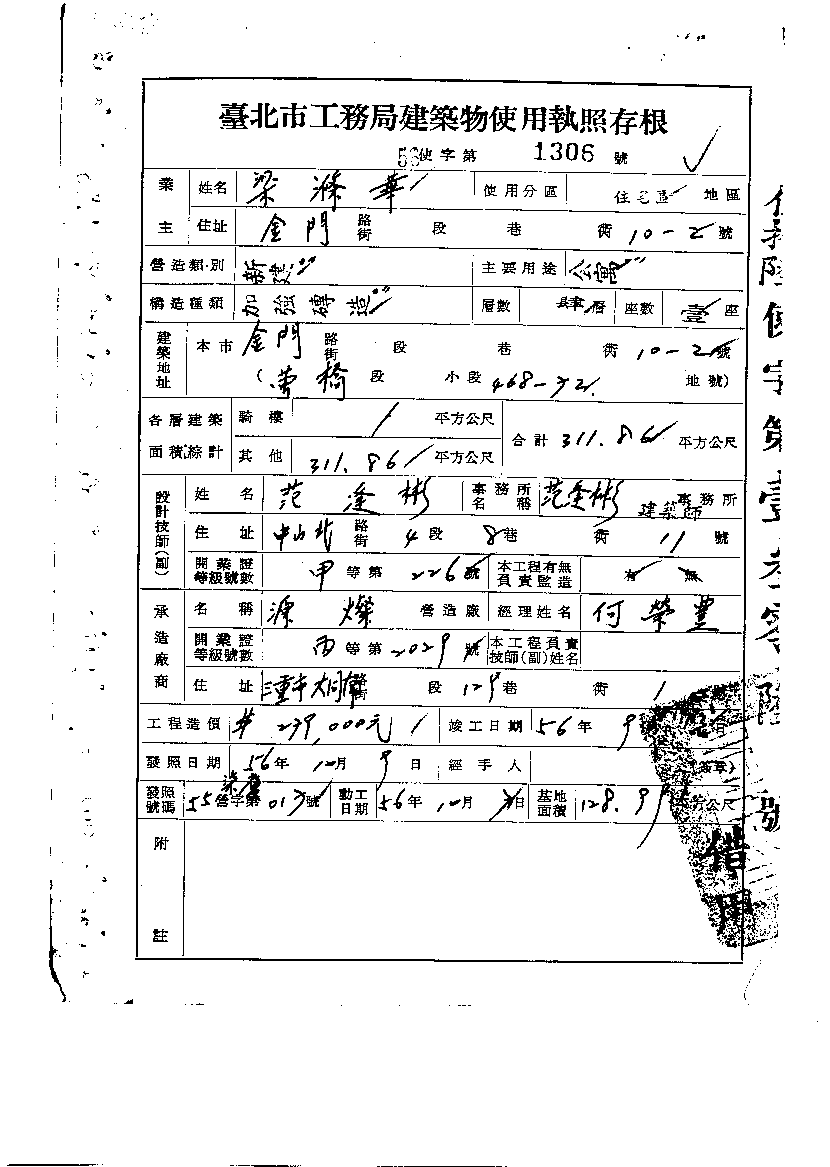 臺北市工務局建築物使用執照存根
56使字第 1306 號
業主 姓名 梁滌華 使用分區 住宅區 地區
住址 金門 路街 段 巷 衖 10-2 號
營造類別 新建 主要用途 公寓
構造種類 加強磚造 層數 肆層 座數 壹座
建築地址 本市 金門 路街 段 巷 衖 10-2 號
( 螢橋 段 小段 468-32 地號)
各層建築面積綜計 騎樓 / 平方公尺 合計 311.86 平方公尺
其他 311.86 平方公尺
設計技師(副) 姓名 范逢彬 事務所名稱 范逢彬建築師事務所
住址 中山北 路街 4段 8巷 衖 11號
開業證等級號數 甲等第 226號 本工程有無負責監造 有 無
承造廠商 名稱 源燦 營造廠 經理姓名 何榮豐
開業證等級號數 丙等第 2029號 本工程負責技師(副)姓名
住址 三重市大同 路街 段 129巷 衖 1
工程造價 # 239,000元 竣工日期 56年 9
發照日期 56年 10月 9日 經手人
發照號碼 55 營字第 013號 動工日期 56年 10月 日 基地面積 128.9 平方公尺
附註
借用
使字第壹參零陸號